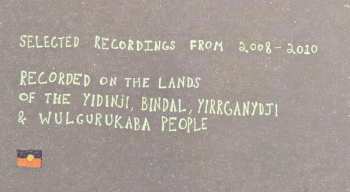 SELECTED RECORDINGS FROM 2008-2010
RECORDED ON THE LANDS
OF THE YIDINJI, BINDAL, YIRRGANYDJI
& WULGURUKABA PEOPLE